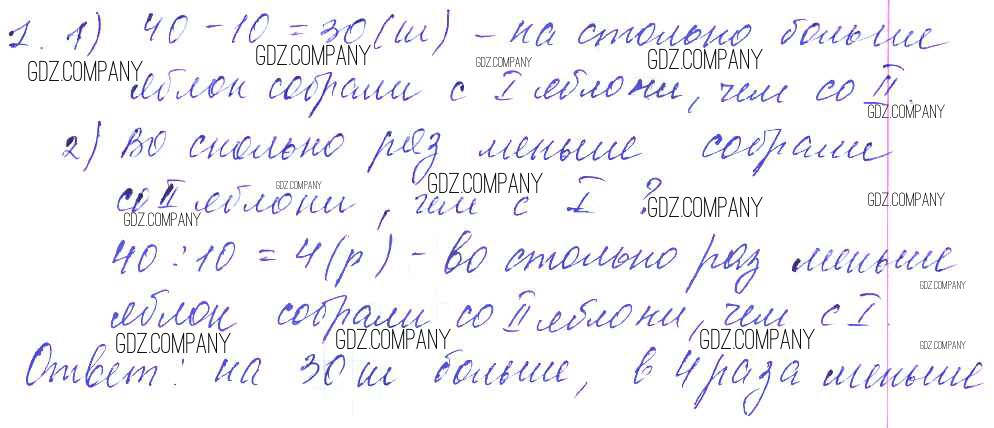 1. 1) 40 - 10 = 30 (ш) - на столько больше
GDZ.COMPANY GDZ.COMPANY GDZ.COMPANY GDZ.COMPANY
яблок собрали с I яблони, чем со II.
GDZ.COMPANY
2) Во сколько раз меньше собрали
GDZ.COMPANY GDZ.COMPANY
со II яблони, чем с I ?
GDZ.COMPANY GDZ.COMPANY GDZ.COMPANY
40 : 10 = 4 (р) - во столько раз меньше
GDZ.COMPANY
яблок собрали со II яблони, чем с I.
GDZ.COMPANY GDZ.COMPANY GDZ.COMPANY GDZ.COMPANY
Ответ: на 30 ш больше, в 4 раза меньше